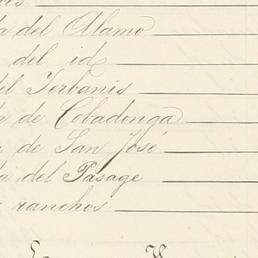 del Alamo
del id
del Yerbanis
de Cobadonga
de San José
del Pasage
ranchos